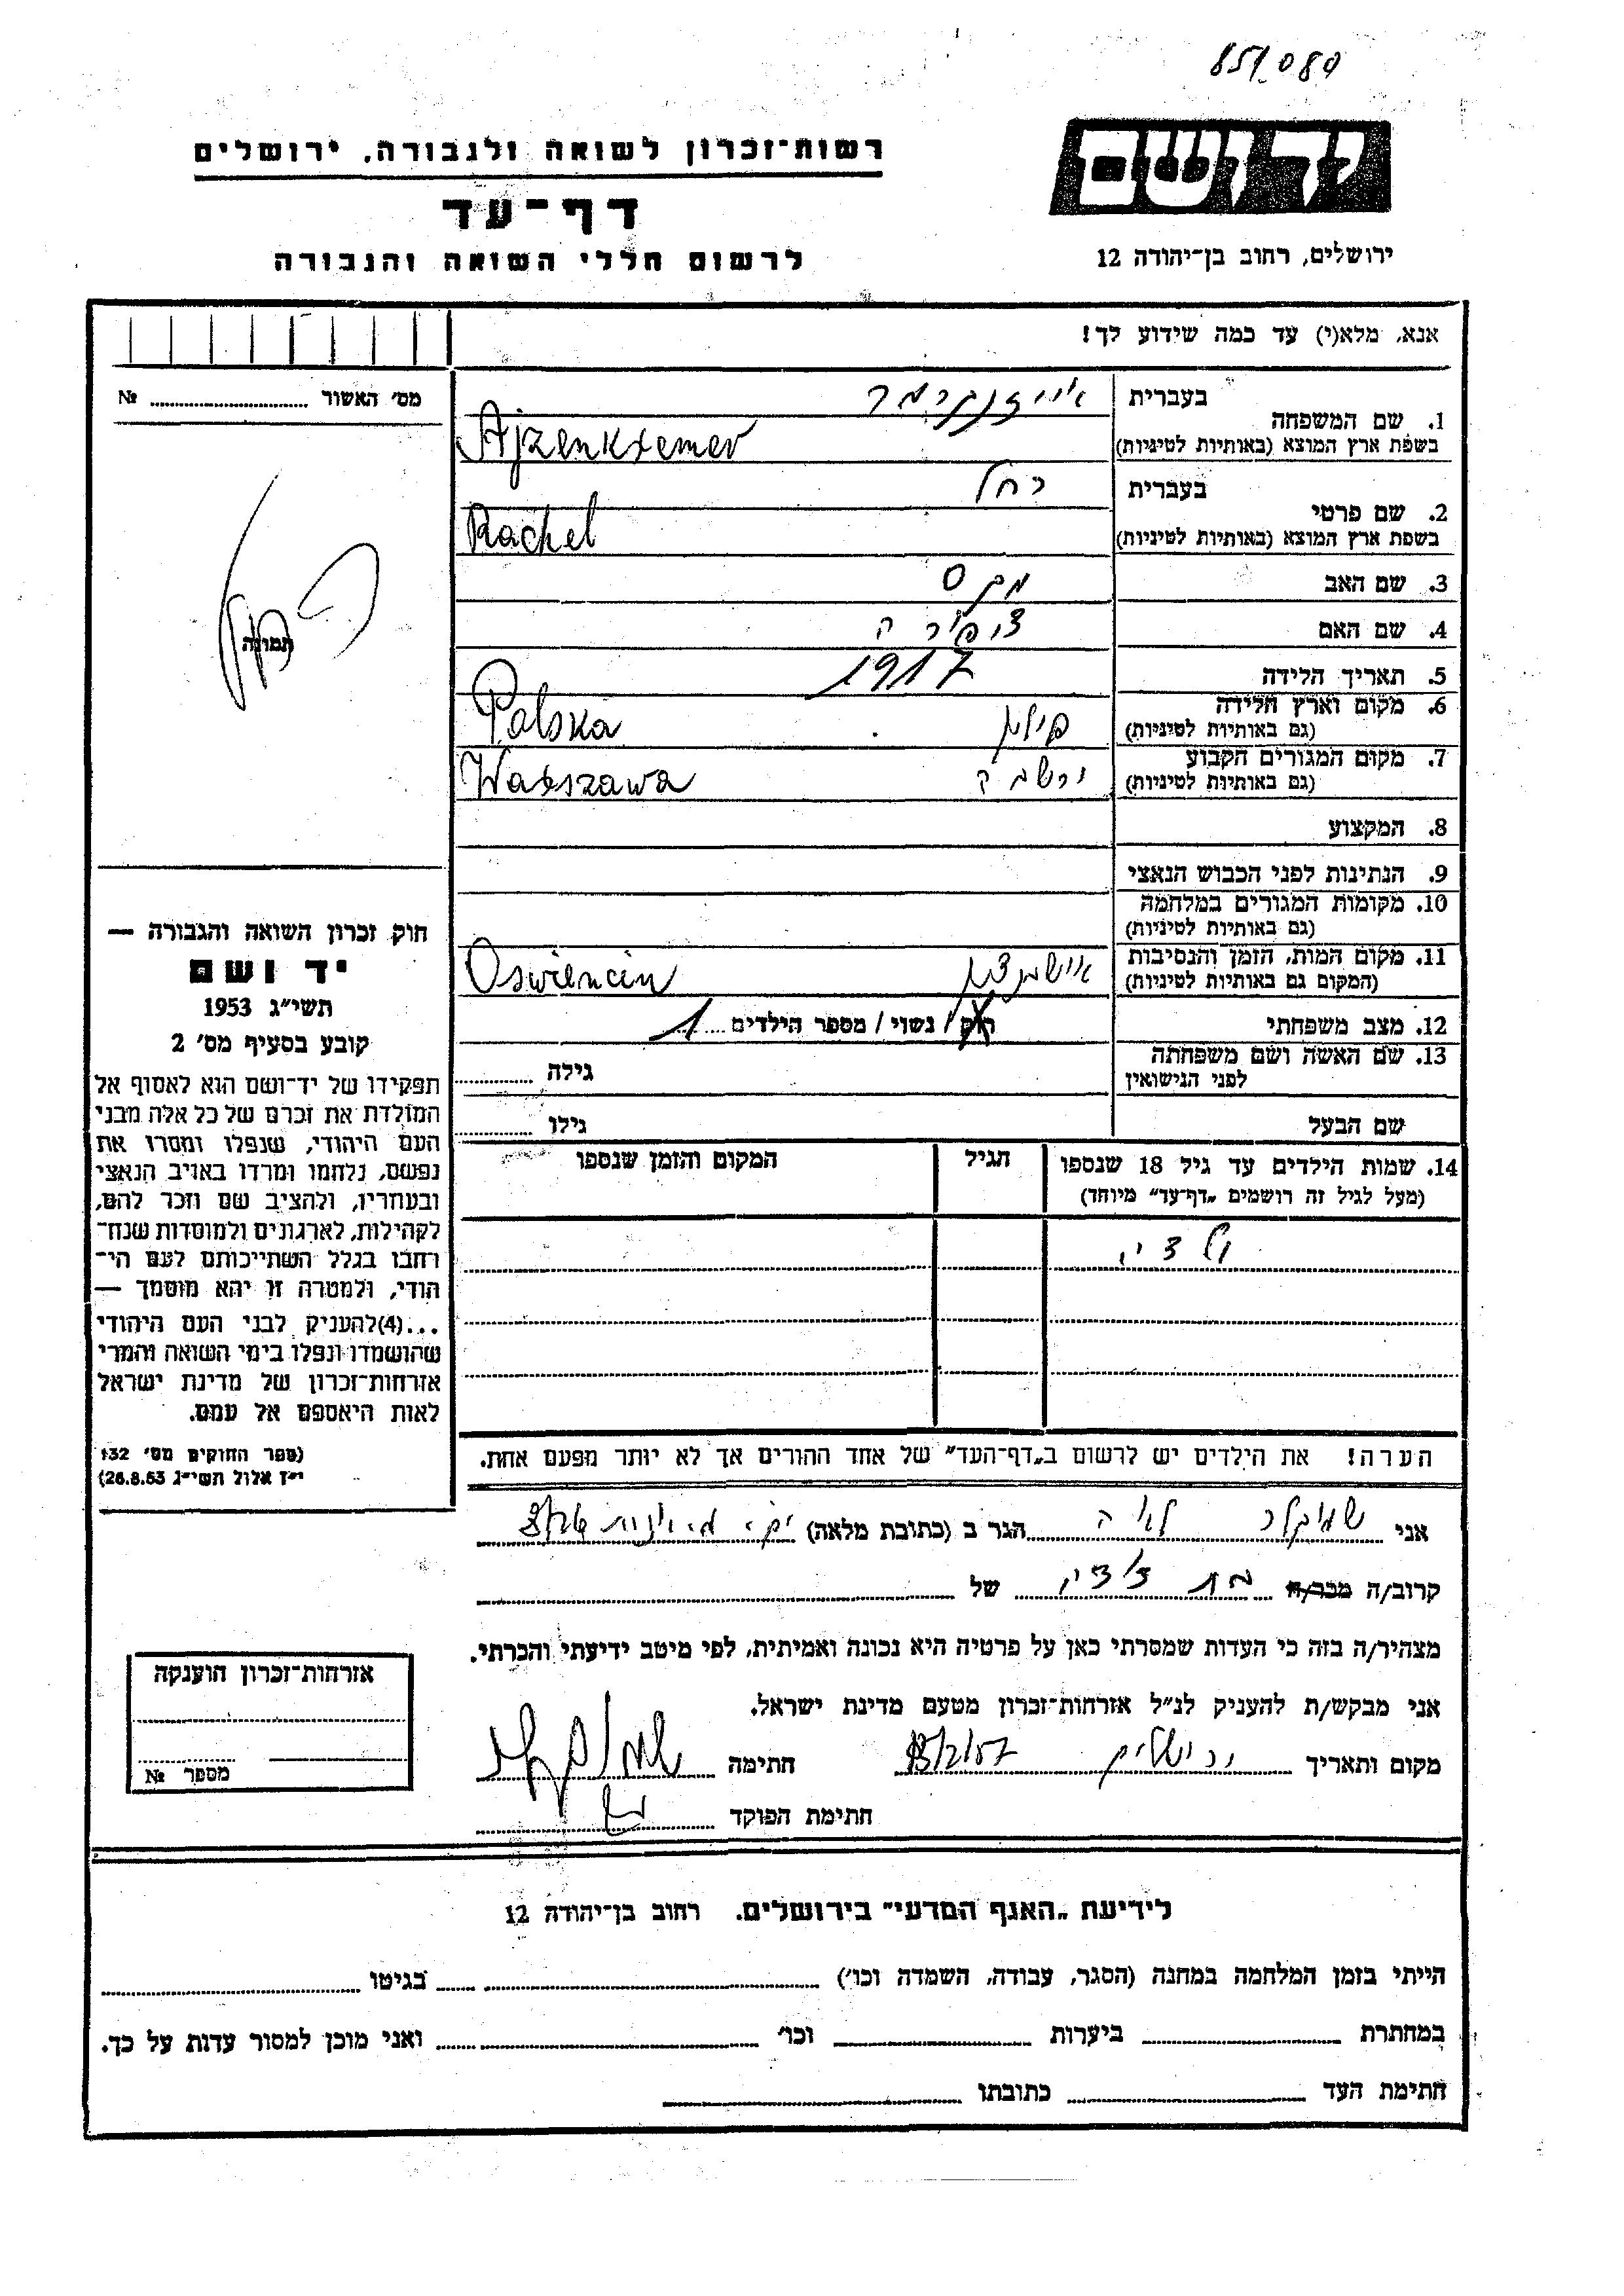 851080
יד ושם
ירושלים, רחוב בן־יהודה 12
רשות־זכרון לשואה ולגבורה, ירושלים
דף־עד
לרשום חללי השואה והגבורה
אנא, מלא(י) עד כמה שידוע לך!
מס׳ האשור № 
1. שם המשפחה בעברית אייזנקרמר
בשפת ארץ המוצא (באותיות לטיניות) Ajzenkremer
2. שם פרטי בעברית רחל
בשפת ארץ המוצא (באותיות לטיניות) Rachel
3. שם האב מקס
4. שם האם ציפורה
5. תאריך הלידה 1917
6. מקום וארץ הלידה פולין Polska
(גם באותיות לטיניות)
7. מקום המגורים הקבוע ורשבה Warszawa
(גם באותיות לטיניות)
8. המקצוע
9. הנתינות לפני הכבוש הנאצי
10. מקומות המגורים במלחמה
(גם באותיות לטיניות)
11. מקום המות, הזמן והנסיבות Oswiencin
(המקום גם באותיות לטיניות)
12. מצב משפחתי רוק / נשוי / מספר הילדים 1
13. שם האשה ושם משפחתה גילה
לפני הנישואין
שם הבעל גילו
14. שמות הילדים עד גיל 18 שנספו הגיל המקום והזמן שנספו
(מעל לגיל זה רושמים „דף־עד” מיוחד)
הערה! את הילדים יש לרשום ב„דף־העד” של אחד ההורים אך לא יותר מפעם אחת.
תמונה
חוק זכרון השואה והגבורה —
יד ושם
תשי״ג 1953
קובע בסעיף מס׳ 2
תפקידו של יד־ושם הוא לאסוף אל
המולדת את זכרם של כל אלה מבני
העם היהודי, שנפלו ומסרו את
נפשם, נלחמו ומרדו באויב הנאצי
ובעוזריו, ולהציב שם וזכר להם,
לקהילות, לארגונים ולמוסדות שנח־
רחבו בגלל השתייכותם לעם הי־
הודי, ולמטרה זו יהא מוסמך —
...(4)להעניק לבני העם היהודי
שהושמדו ונפלו בימי השואה והמרי
אזרחות־זכרון של מדינת ישראל
לאות היאספם אל עמם.
(ספר החוקים מס׳ 132
י״ז אלול תשי״ג 26.8.53)
אני לאה הגר ב (כתובת מלאה)
קרוב/ה מכר/ה בת של
מצהיר/ה בזה כי העדות שמסרתי כאן על פרטיה היא נכונה ואמיתית, לפי מיטב ידיעתי והכרתי.
אני מבקש/ת להעניק לנ״ל אזרחות־זכרון מטעם מדינת ישראל.
מקום ותאריך ירושלים חתימה
חתימת הפוקד
אזרחות־זכרון הוענקה
מספר №
לידיעת „האגף המדעי” בירושלים. רחוב בן־יהודה 12
הייתי בזמן המלחמה במחנה (הסגר, עבודה, השמדה וכו׳) בגיטו
במחתרת ביערות וכו׳ ואני מוכן למסור עדות על כך.
חתימת העד כתובתו